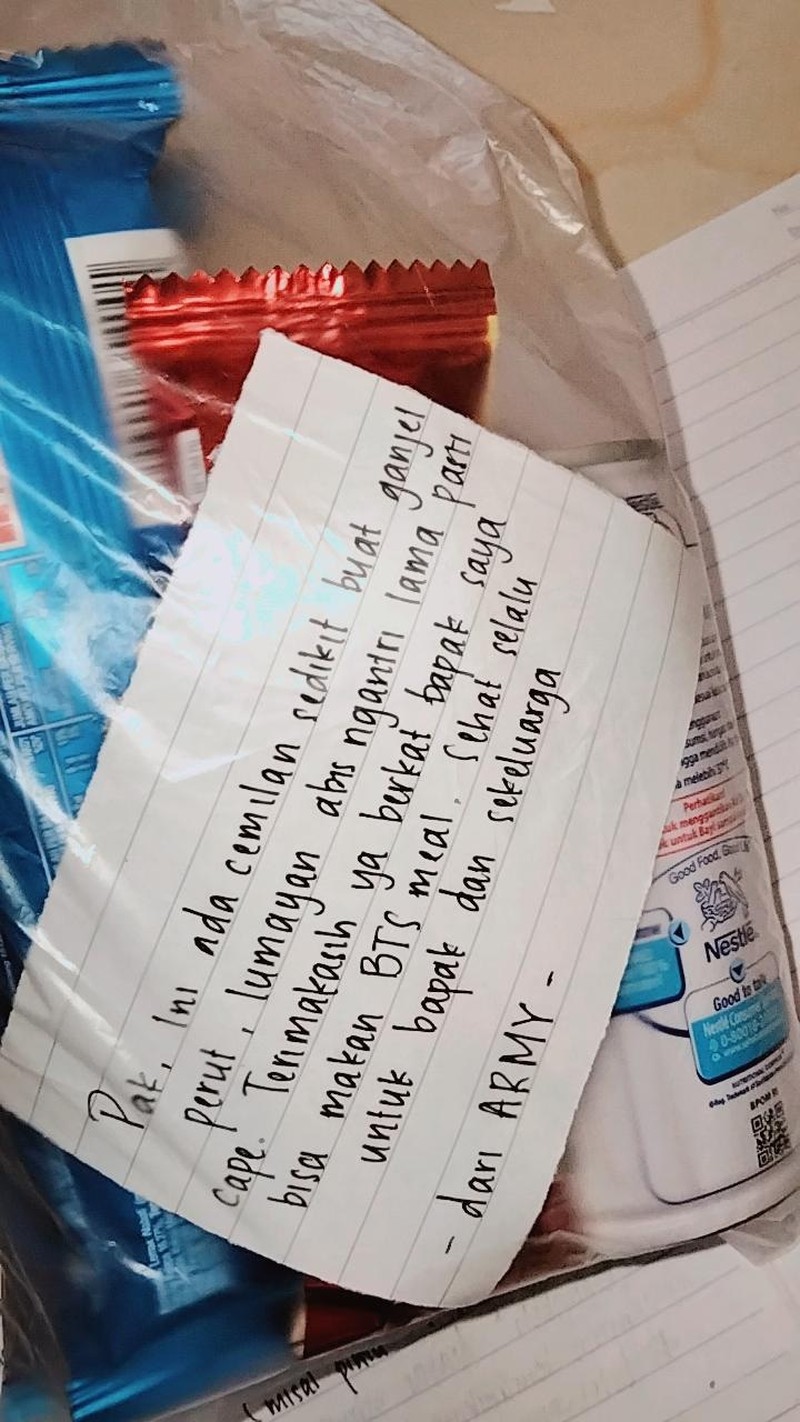 Pak, Ini ada cemilan sedikit buat ganjel
perut, lumayan abis ngantri lama pasti
cape. Terimakasih ya berkat bapak saya
bisa makan BTS meal. Sehat selalu
untuk bapak dan sekeluarga
- dari ARMY -
Perhatikan!
Good Food, Good Life
Nestlé
Good to talk
BPOM RI
(misal